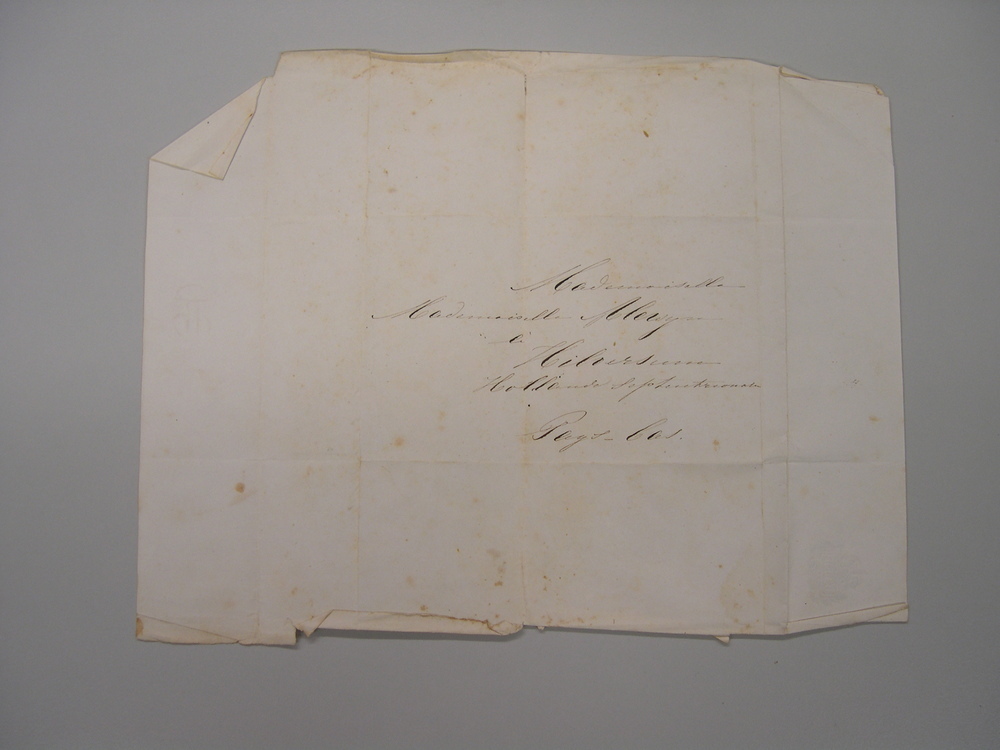 Mademoiselle
Mademoiselle Meyjes
à
Hilversum
Hollande septentrionale
Pays-bas.